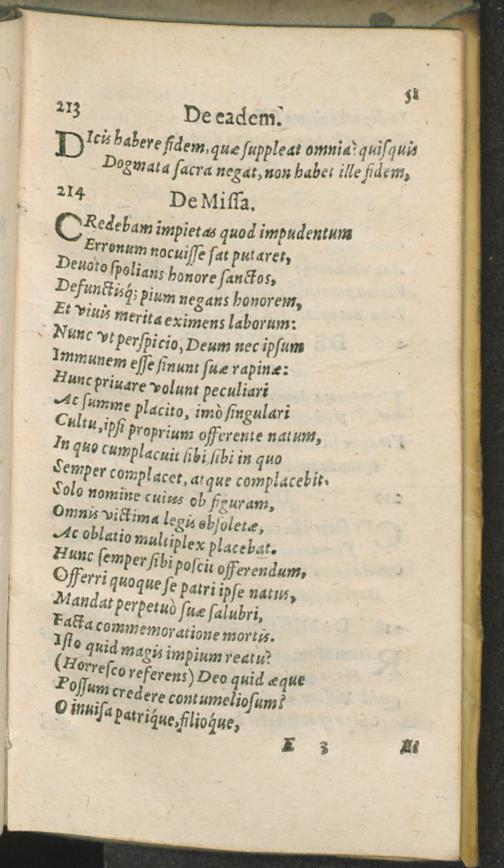 58
213
De eadem.
DIcis habere fidem, quæ suppleat omnia? quisquis
Dogmata sacra negat, non habet ille fidem,
214
De Missa.
CRedebam impietas quod impudentum
Erronum nocuisse sat putaret,
Deuoto spolians honore sanctos,
Defunctisq́; pium negans honorem,
Et viuis merita eximens laborum:
Nunc vt perspicio, Deum nec ipsum
Immunem esse sinunt suæ rapinæ:
Hunc priuare volunt peculiari
Ac summe placito, imò singulari
Cultu, ipsi proprium offerente natum,
In quo cumplacuit sibi, sibi in quo
Semper complacet, atque complacebit.
Solo nomine cuius ob figuram,
Omnis victima legis obsoletæ,
Ac oblatio multiplex placebat.
Hunc semper sibi poscit offerendum,
Offerri quoque se patri ipse natus,
Mandat perpetuò suæ salubri,
Facta commemoratione mortis.
Isto quid magis impium reatu?
(Horresco referens) Deo quid æque
Possum credere contumeliosum?
O inuisa patriq́ue, filioq́ue,
E 3